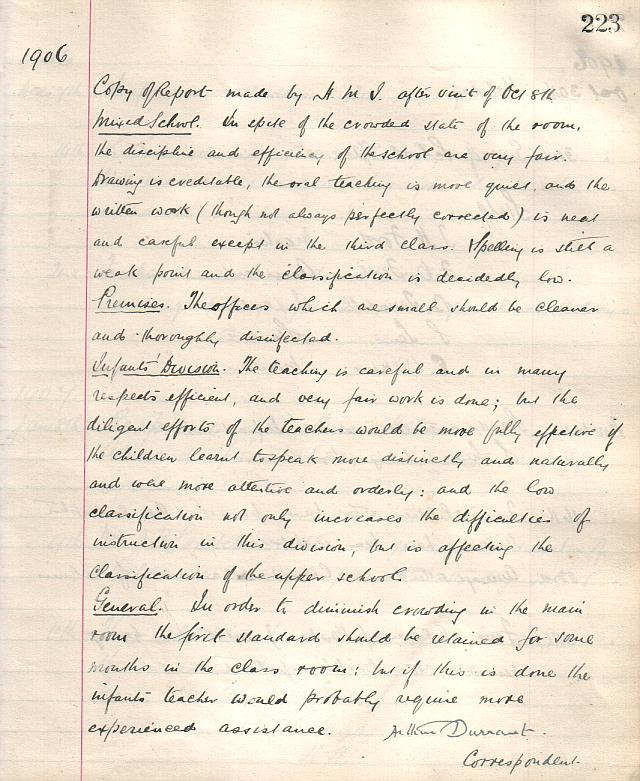 223
1906
Copy of Report made by H.M.I. after visit of Oct 8th
Mixed School. In spite of the crowded state of the room,
the discipline and efficiency of the school are very fair.
Drawing is creditable, the oral teaching is more quiet, and the
written work (though not always perfectly corrected) is neat
and careful except in the third class. Spelling is still a
weak point and the classification is decidedly low.
Premises. The offices which are small should be cleaner
and thoroughly disinfected.
Infants' Division. The teaching is careful and in many
respects efficient, and very fair work is done; but the
diligent efforts of the teachers would be more fully effective if
the children learnt to speak more distinctly and naturally
and were more attentive and orderly: and the low
classification not only increases the difficulties of
instruction in this division, but is affecting the
classification of the upper school.
General. In order to diminish crowding in the main
room the first standard should be retained for some
months in the class room: but if this is done the
infants teacher would probably require more
experienced assistance. Arthur Durrant.
Correspondent.